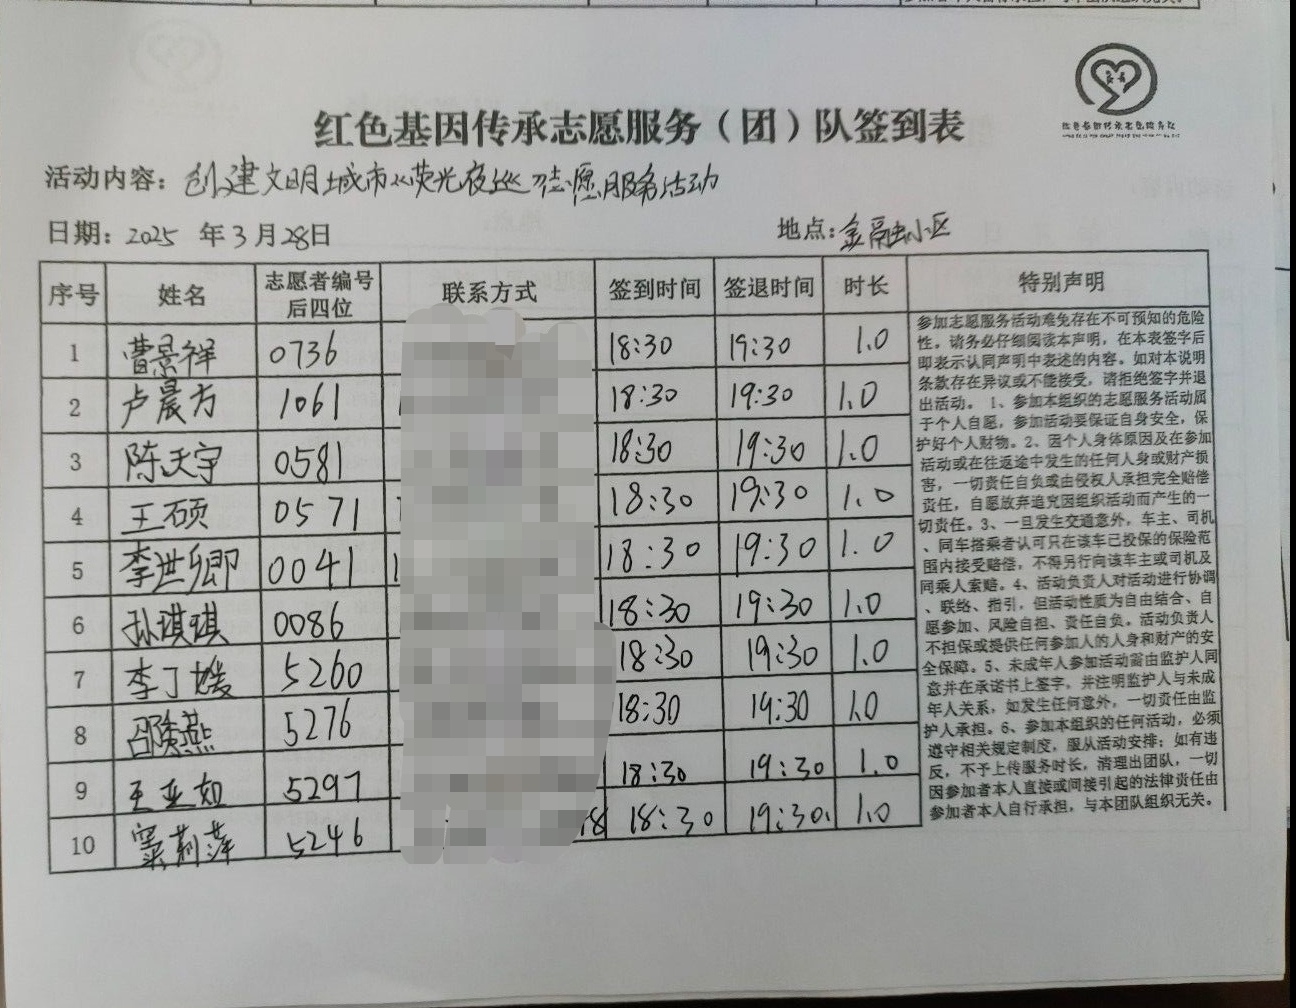 红色基因传承志愿服务（团）队签到表
活动内容：创建文明城市《荧光夜巡》志愿服务活动
日期：2025 年 3 月 28日
地点：金融小区
序号 姓名 志愿者编号后四位 联系方式 签到时间 签退时间 时长 特别声明
1 曹景祥 0736 18:30 19:30 1.0
2 卢晨方 1061 18:30 19:30 1.0
3 陈天宇 0581 18:30 19:30 1.0
4 王硕 0571 18:30 19:30 1.0
5 李世卿 0041 18:30 19:30 1.0
6 孙琪琪 0086 18:30 19:30 1.0
7 李丁媛 5260 18:30 19:30 1.0
8 邵燕 5276 18:30 19:30 1.0
9 王亚如 5297 18:30 19:30 1.0
10 窦莉萍 5246 18 18:30 19:30 1.0
参加志愿服务活动难免存在不可预知的危险
性。请务必仔细阅读本声明，在本表签字后
即表示认同声明中表述的内容。如对本说明
条款存在异议或不能接受，请拒绝签字并退
出活动。1、参加本组织的志愿服务活动属
于个人自愿，参加活动要保证自身安全，保
护好个人财物。2、因个人身体原因及在参加
活动或在往返途中发生的任何人身或财产损
害，一切责任自负或由侵权人承担完全赔偿
责任，自愿放弃追究因组织活动而产生的一
切责任。3、一旦发生交通意外，车主、司机
、同车搭乘者认可只在该车已投保的保险范
围内接受赔偿，不得另行向该车主或司机及
同乘人索赔。4、活动负责人对活动进行协调
、联络、指引，但活动性质为自由结合、自
愿参加、风险自担、责任自负。活动负责人
不担保或提供任何参加人的人身和财产的安
全保障。5、未成年人参加活动需由监护人同
意并在承诺书上签字，并注明监护人与未成
年人关系，如发生任何意外，一切责任由监
护人承担。6、参加本组织的任何活动，必须
遵守相关规定制度，服从活动安排；如有违
反，不予上传服务时长，清理出团队，一切
因参加者本人直接或间接引起的法律责任由
参加者本人自行承担，与本团队组织无关。